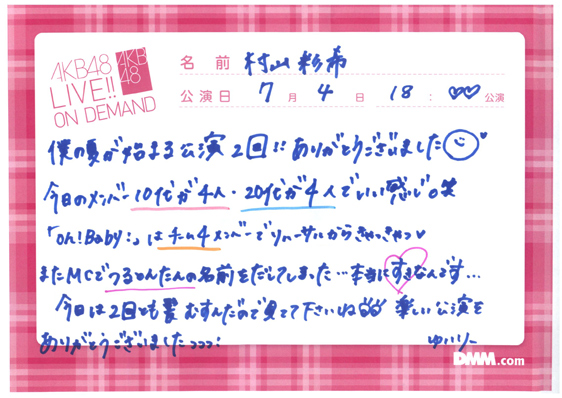 AKB48
LIVE!!
ON DEMAND
AKB
48
名前 村山彩希
公演日 7月4日 18:♡♡公演
僕の夏が始まる公演2回!! ありがとうございました
今日のメンバー10代が4人・20代が4人でいい感じ。笑
「oh! Baby!」はチーム4メンバーでリハーサルからきゃっきゃっ♥
またMCでつるちゃんたんの名前をだしてしまった…本当にすきなんです…
今日は2回とも髪むすんだので見てて下さいね 楽しい公演を
ありがとうございましたっっっ! ゆいりー
DMM.com